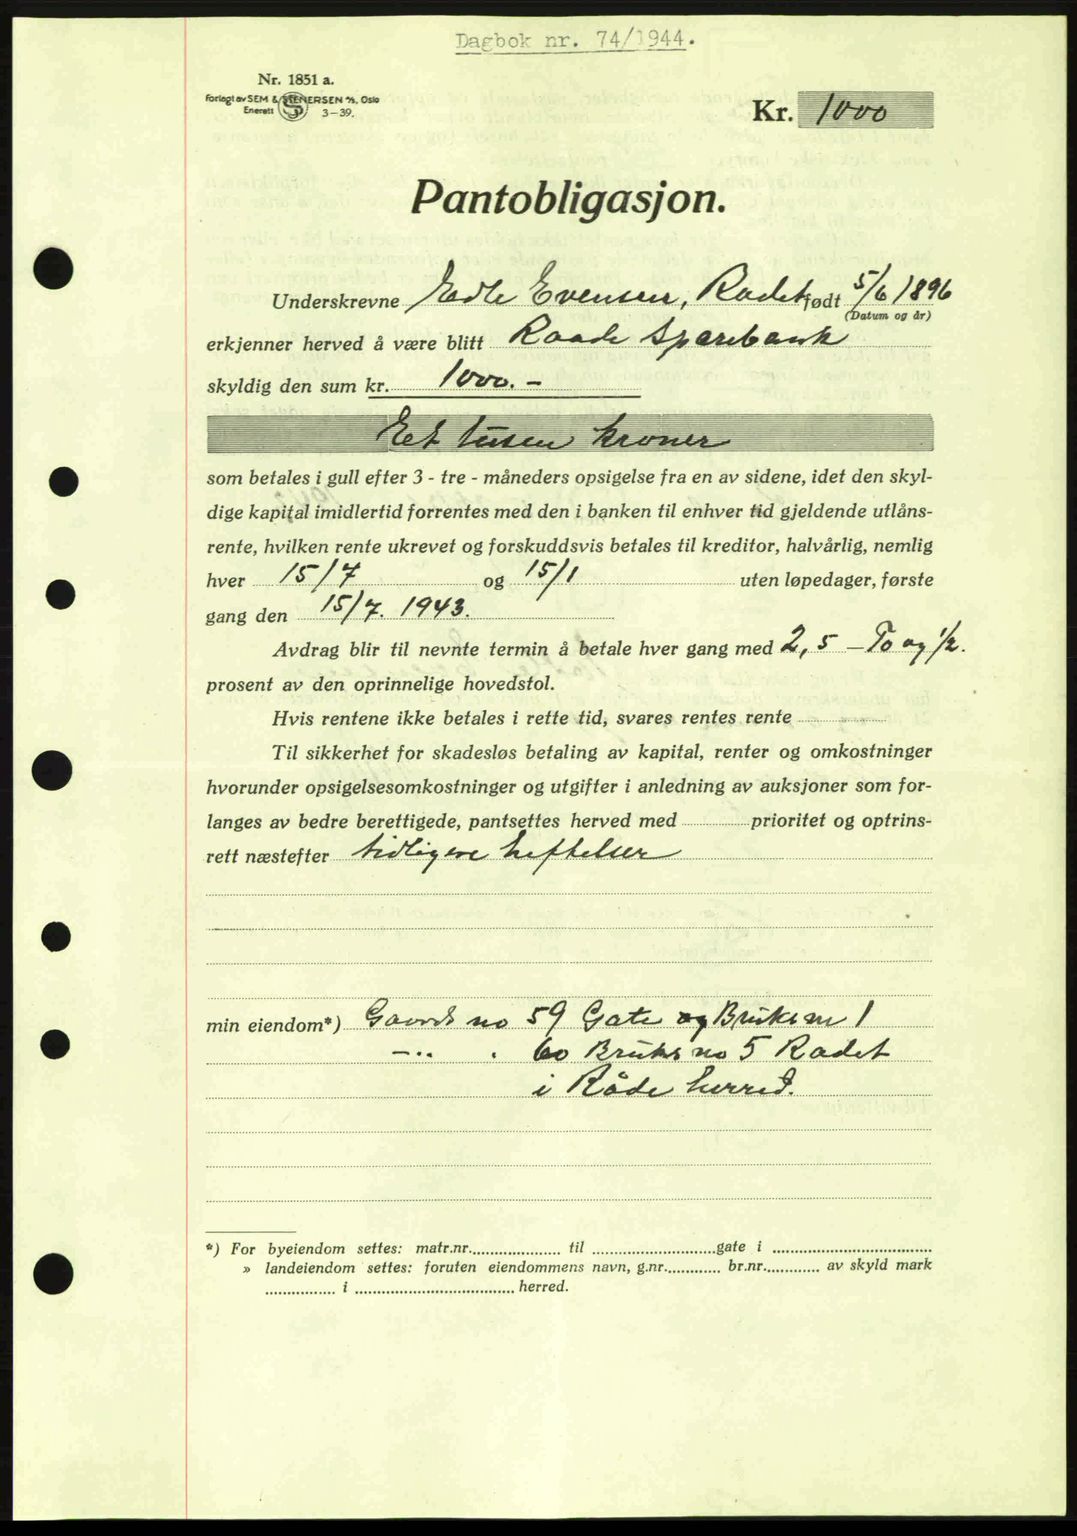 Dagbok nr. 74/1944.
Nr. 1851 a.
Forlagt av SEM & STENERSEN A/S, Oslo
Enerett 3—39.
Kr. 1000
Pantobligasjon.
Underskrevne Edle Evensen, Radet født 5/6 1896
(Datum og år)
erkjenner herved å være blitt Raade Sparebank
skyldig den sum kr. 1000.-
Eet tusen kroner
som betales i gull efter 3 - tre - måneders opsigelse fra en av sidene, idet den skyl-
dige kapital imidlertid forrentes med den i banken til enhver tid gjeldende utlåns-
rente, hvilken rente ukrevet og forskuddsvis betales til kreditor, halvårlig, nemlig
hver 15/7 og 15/1 uten løpedager, første
gang den 15/7. 1943.
Avdrag blir til nevnte termin å betale hver gang med 2,5 — To og 1/2.
prosent av den oprinnelige hovedstol.
Hvis rentene ikke betales i rette tid, svares rentes rente
Til sikkerhet for skadesløs betaling av kapital, renter og omkostninger
hvorunder opsigelsesomkostninger og utgifter i anledning av auksjoner som for-
langes av bedre berettigede, pantsettes herved med prioritet og optrins-
rett næstefter tidligere heftelser
min eiendom*) Gaards no 59 Gate og Bruksnr 1
—..  . 60 Bruks no 5 Radet
i Råde herred.
*) For byeiendom settes: matr.nr. til gate i
» landeiendom settes: foruten eiendommens navn, g.nr. br.nr. av skyld mark
i herred.